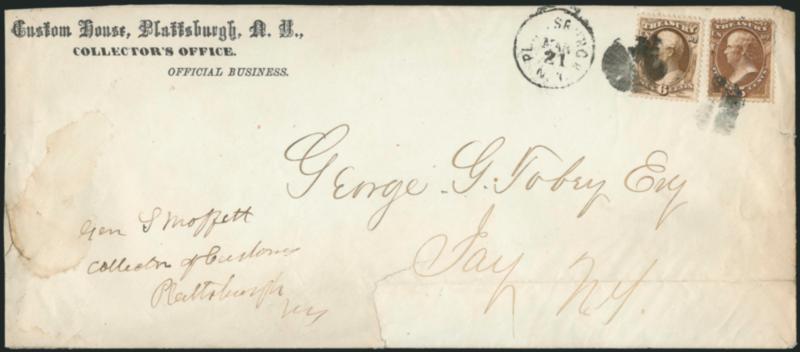 Custom House, Plattsburgh, N. Y.,
COLLECTOR'S OFFICE.
OFFICIAL BUSINESS.
MAR
21
N.Y.
TREASURY
6
TREASURY
CENTS
George G. Tobey Esq
Jay N.Y.
Geo S Moffett
Collector of Customs
Plattsburgh
NY